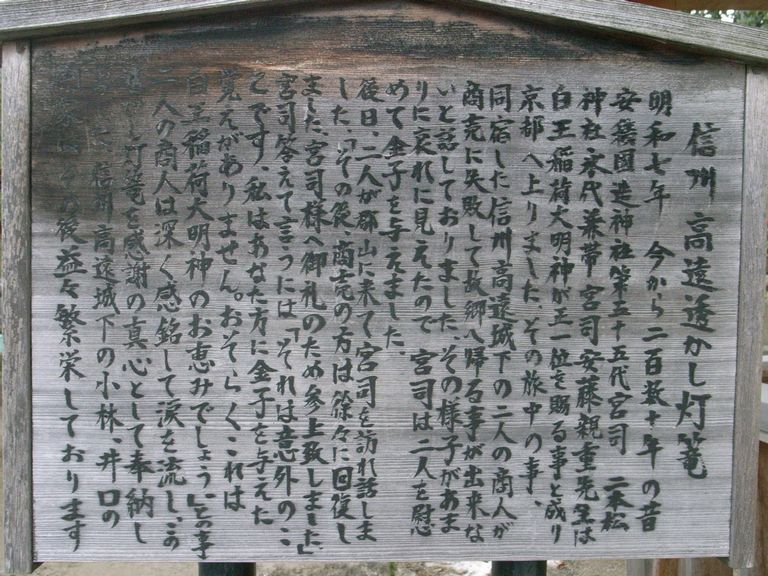 信州高遠透かし灯篭
明和七年 今から二百数十年の昔
安積国造神社第五十五代宮司 二本松
神社永代兼帯宮司安藤親重先生は
白王稲荷大明神が王一位を賜る事と成り
京都へ上りました、その旅中の事、
同宿した信州高遠城下の二人の商人が
商売に失敗して故郷へ帰る事が出来な
いと話しておりました、その様子があま
りに哀れに見えたので宮司は二人を慰
めて金子を与えました、
後日、二人が郡山に来て宮司を訪れ話しま
した、「その後、商売の方は徐々に回復し
ました、宮司様へ御礼のため参上致しました」
宮司答えて言うには「それは意外のこ
とです、私はあなた方に金子を与えた
覚えがありません。おそらくこれは
白王稲荷大明神のお恵みでしょう」との事
二人の商人は深く感銘して涙を流し、この
灯篭を感謝の真心として奉納し
信州高遠城下の小林、井口の
その後益々繁栄しております